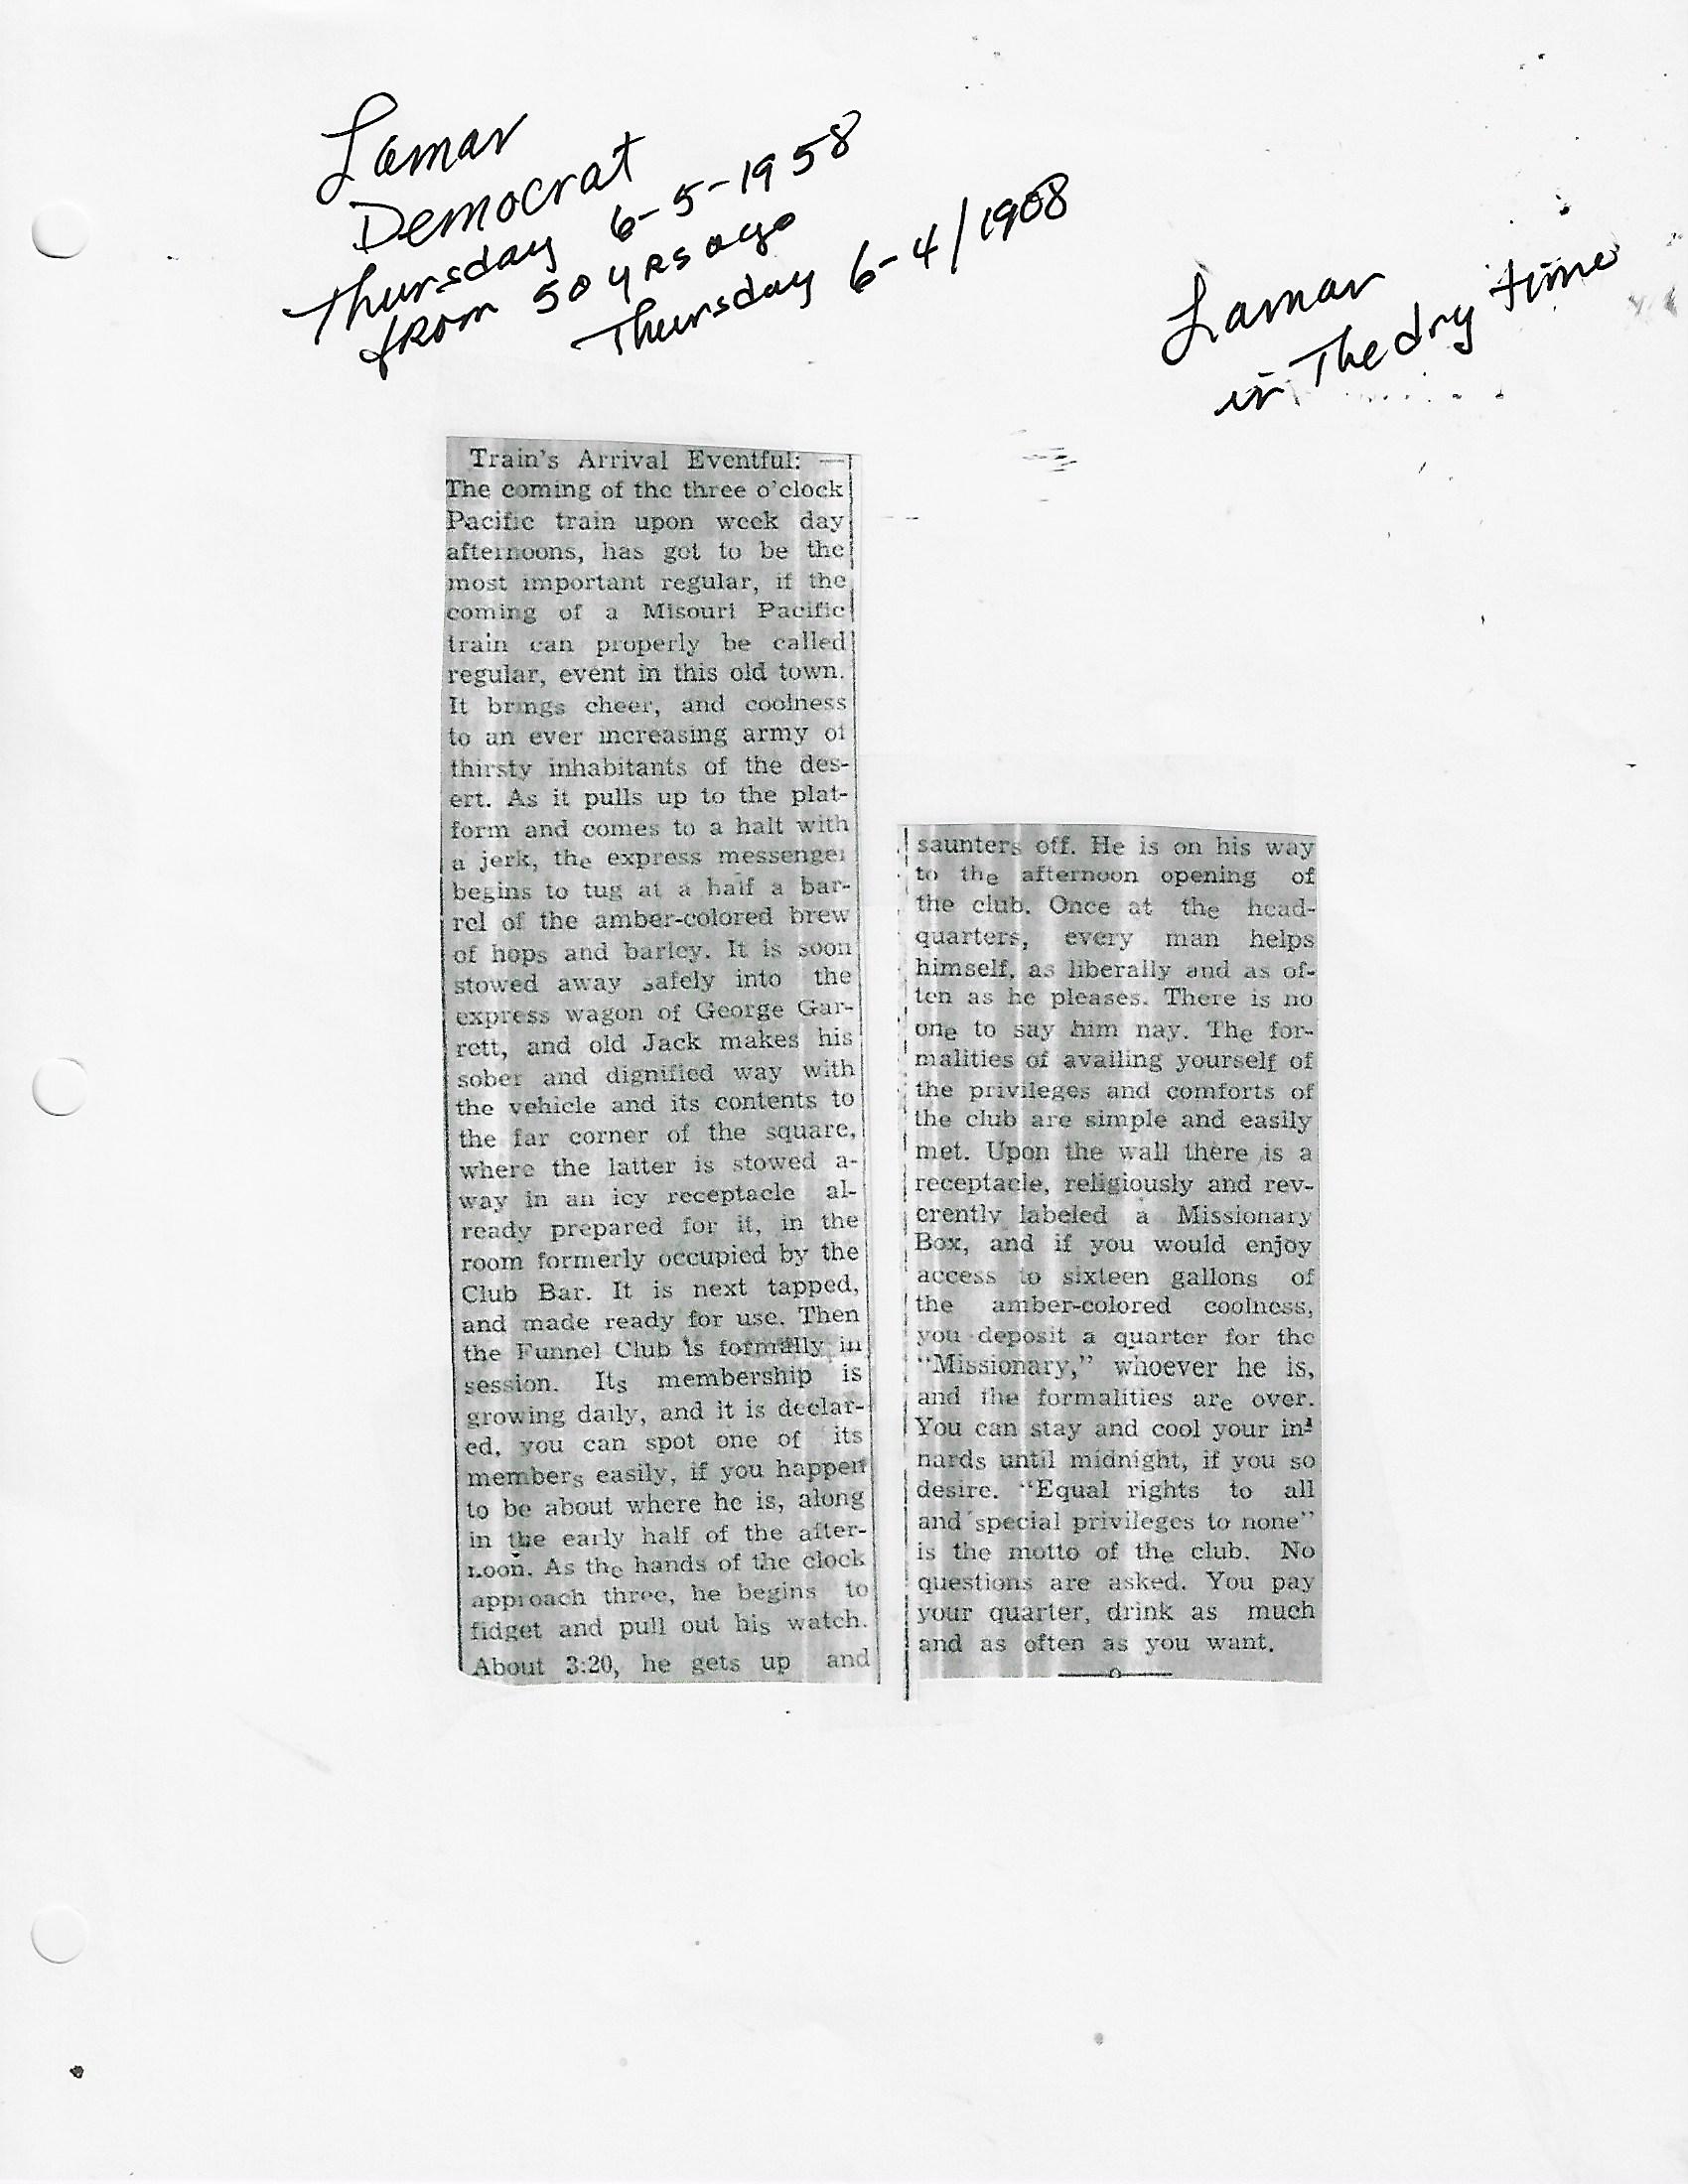 Lamar
Democrat
Thursday 6-5-1958
from 50 yrs ago
Thursday 6-4/1908
Lamar
in The dry time
Train's Arrival Eventful: —
The coming of the three o'clock
Pacific train upon week day
afternoons, has got to be the
most important regular, if the
coming of a Misouri Pacific
train can properly be called
regular, event in this old town.
It brings cheer, and coolness
to an ever increasing army of
thirsty inhabitants of the des-
ert. As it pulls up to the plat-
form and comes to a halt with
a jerk, the express messenger
begins to tug at a half a bar-
rel of the amber-colored brew
of hops and barley. It is soon
stowed away safely into the
express wagon of George Gar-
rett, and old Jack makes his
sober and dignified way with
the vehicle and its contents to
the far corner of the square,
where the latter is stowed a-
way in an icy receptacle al-
ready prepared for it, in the
room formerly occupied by the
Club Bar. It is next tapped,
and made ready for use. Then
the Funnel Club is formally in
session. Its membership is
growing daily, and it is declar-
ed, you can spot one of its
members easily, if you happen
to be about where he is, along
in the early half of the after-
noon. As the hands of the clock
approach three, he begins to
fidget and pull out his watch.
About 3:20, he gets up and
saunters off. He is on his way
to the afternoon opening of
the club. Once at the head-
quarters, every man helps
himself, as liberally and as of-
ten as he pleases. There is no
one to say him nay. The for-
malities of availing yourself of
the privileges and comforts of
the club are simple and easily
met. Upon the wall there is a
receptacle, religiously and rev-
erently labeled a Missionary
Box, and if you would enjoy
access to sixteen gallons of
the amber-colored coolness,
you deposit a quarter for the
"Missionary," whoever he is,
and the formalities are over.
You can stay and cool your in-
nards until midnight, if you so
desire. "Equal rights to all
and special privileges to none"
is the motto of the club. No
questions are asked. You pay
your quarter, drink as much
and as often as you want.